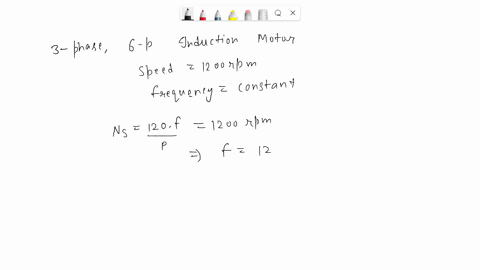 3-phase, 6-p Induction Motor
Speed = 1200 rpm
frequency = constant
Ns = 120.f / P = 1200 rpm
⇒ f = 12